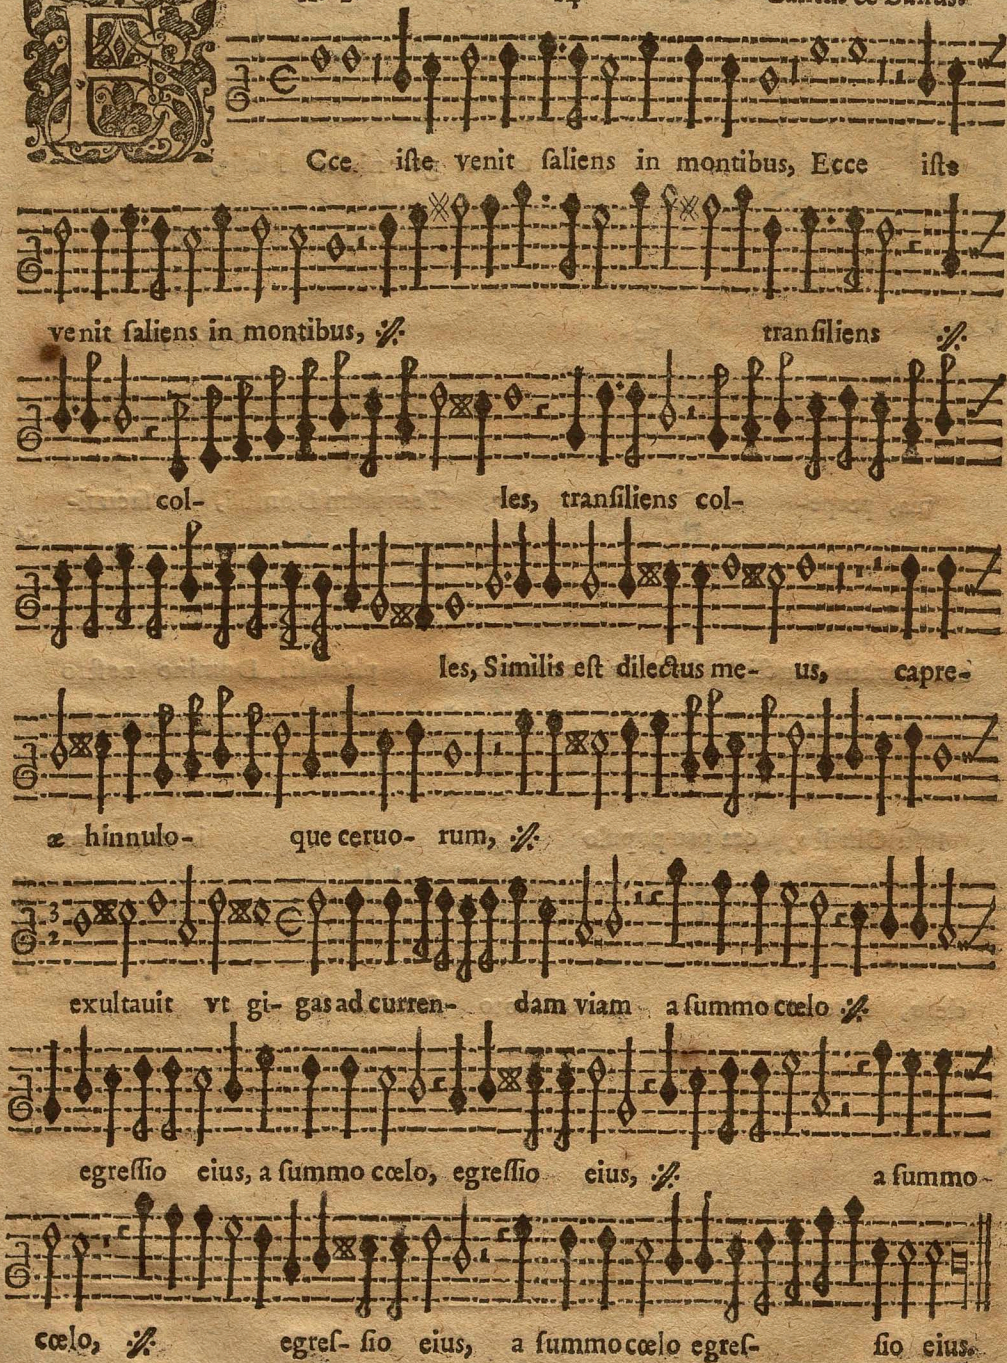 ECce iſte venit ſaliens in montibus, Ecce iſte
venit ſaliens in montibus, ·//· tranſiliens ·//·
col- les, tranſiliens col-
les, Similis eſt dilectus me- us, capre-
æ hinnulo- que ceruo- rum, ·//·
exultauit vt gi- gas ad curren- dam viam a ſummo cœlo ·//·
egreſſio eius, a ſummo cœlo, egreſſio eius, ·//· a ſummo-
cœlo, ·//· egreſ- ſio eius, a ſummo cœlo egreſ- ſio eius.